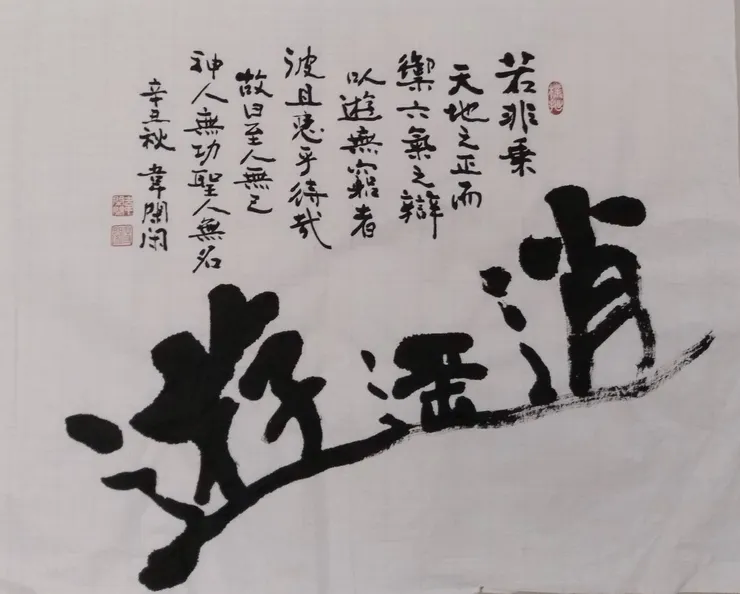 若非乘
天地之正而
禦六氣之辯
以遊無窮者
彼且惡乎待哉
故曰至人無己
神人無功聖人無名
辛丑秋 韋
逍遥遊